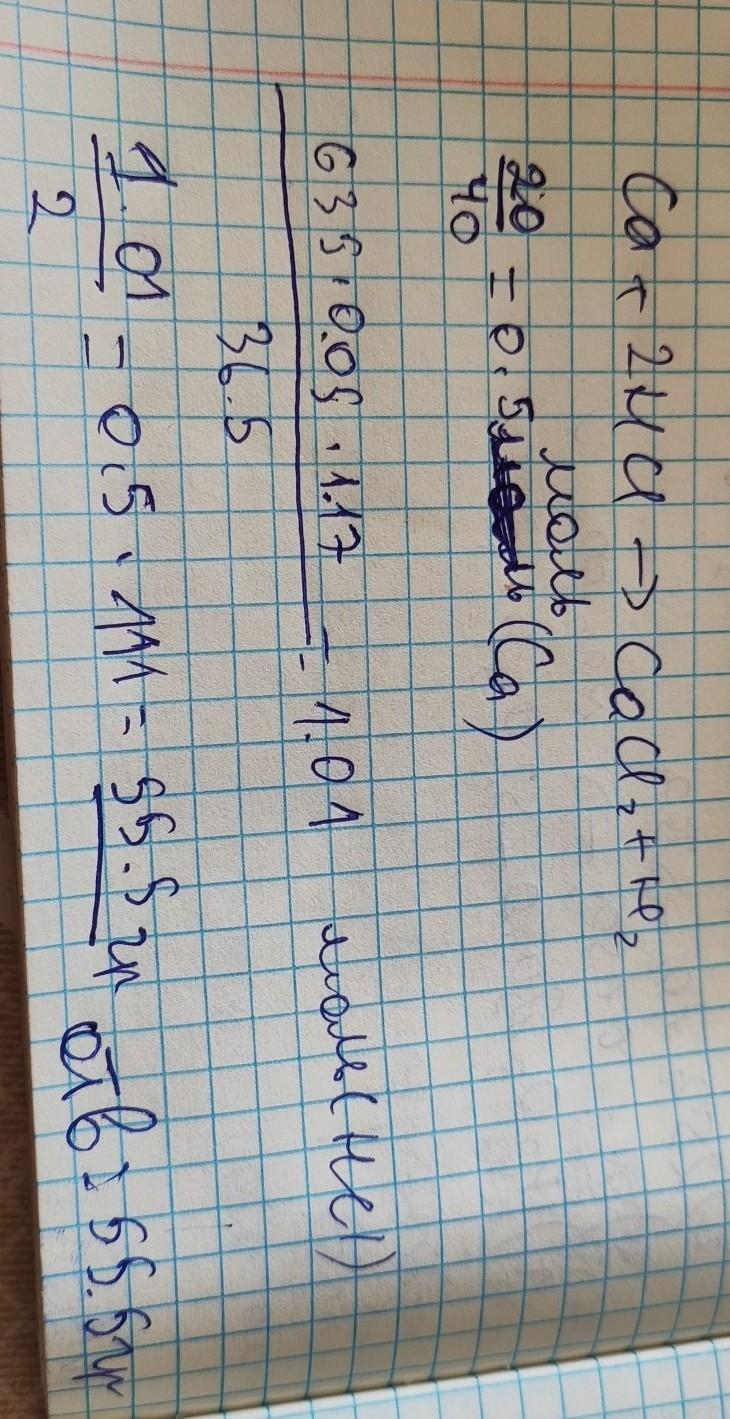 Ca + 2HCl → CaCl₂ + H₂
20/40 = 0.5 моль (Ca)
635 · 0.05 · 1.17 / 36.5 = 1.01 моль (HCl)
1.01/2 = 0.5 · 111 = 55.5 гр Отв: 55.5гр